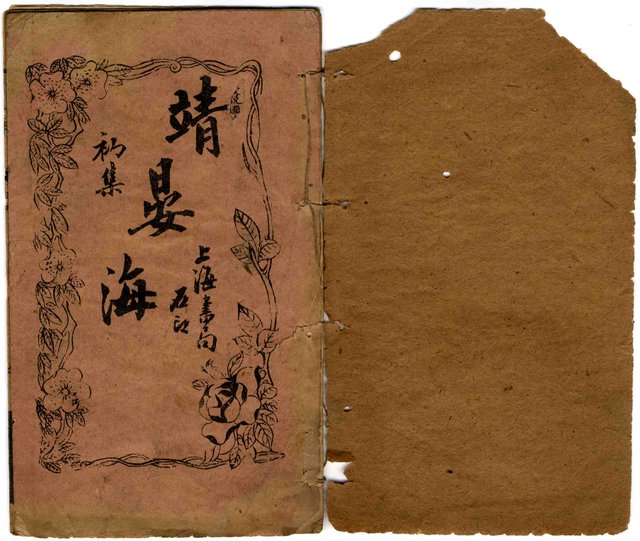 靖晏海
初集
上海書局
石印